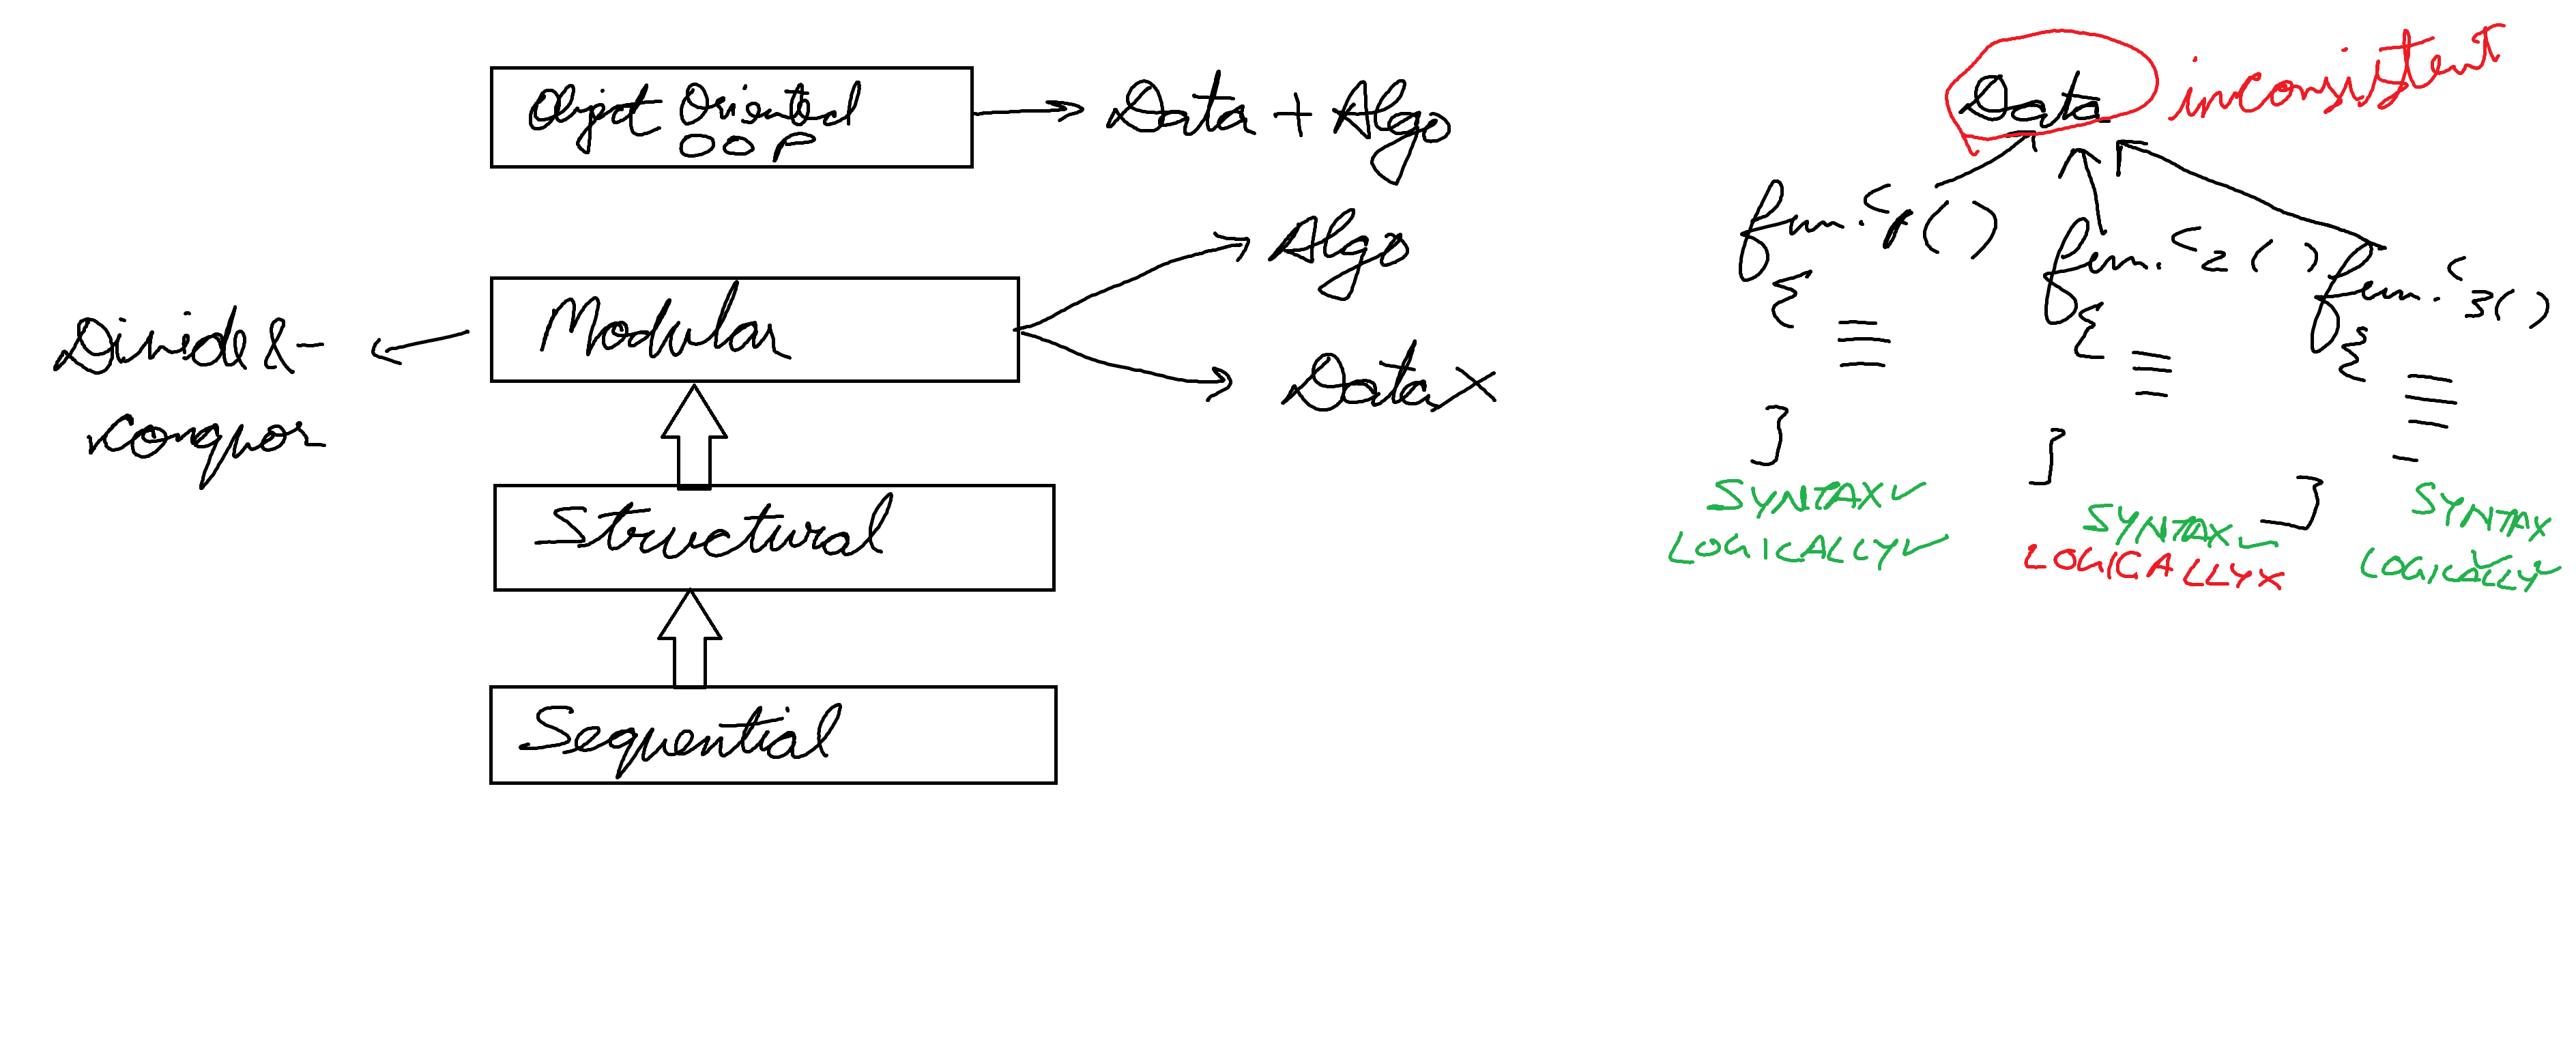 Object Oriented
OOP
Data + Algo
Modular
Algo
Data X
Divide &
Conquor
Structural
Sequential
Data
inconsistent
fun.c 1 ( )
{
}
SYNTAX ✓
LOGICALLY ✓
fun.c 2 ( )
{
}
SYNTAX ✓
LOGICALLY X
fun.c 3 ( )
{
}
SYNTAX ✓
LOGICALLY ✓